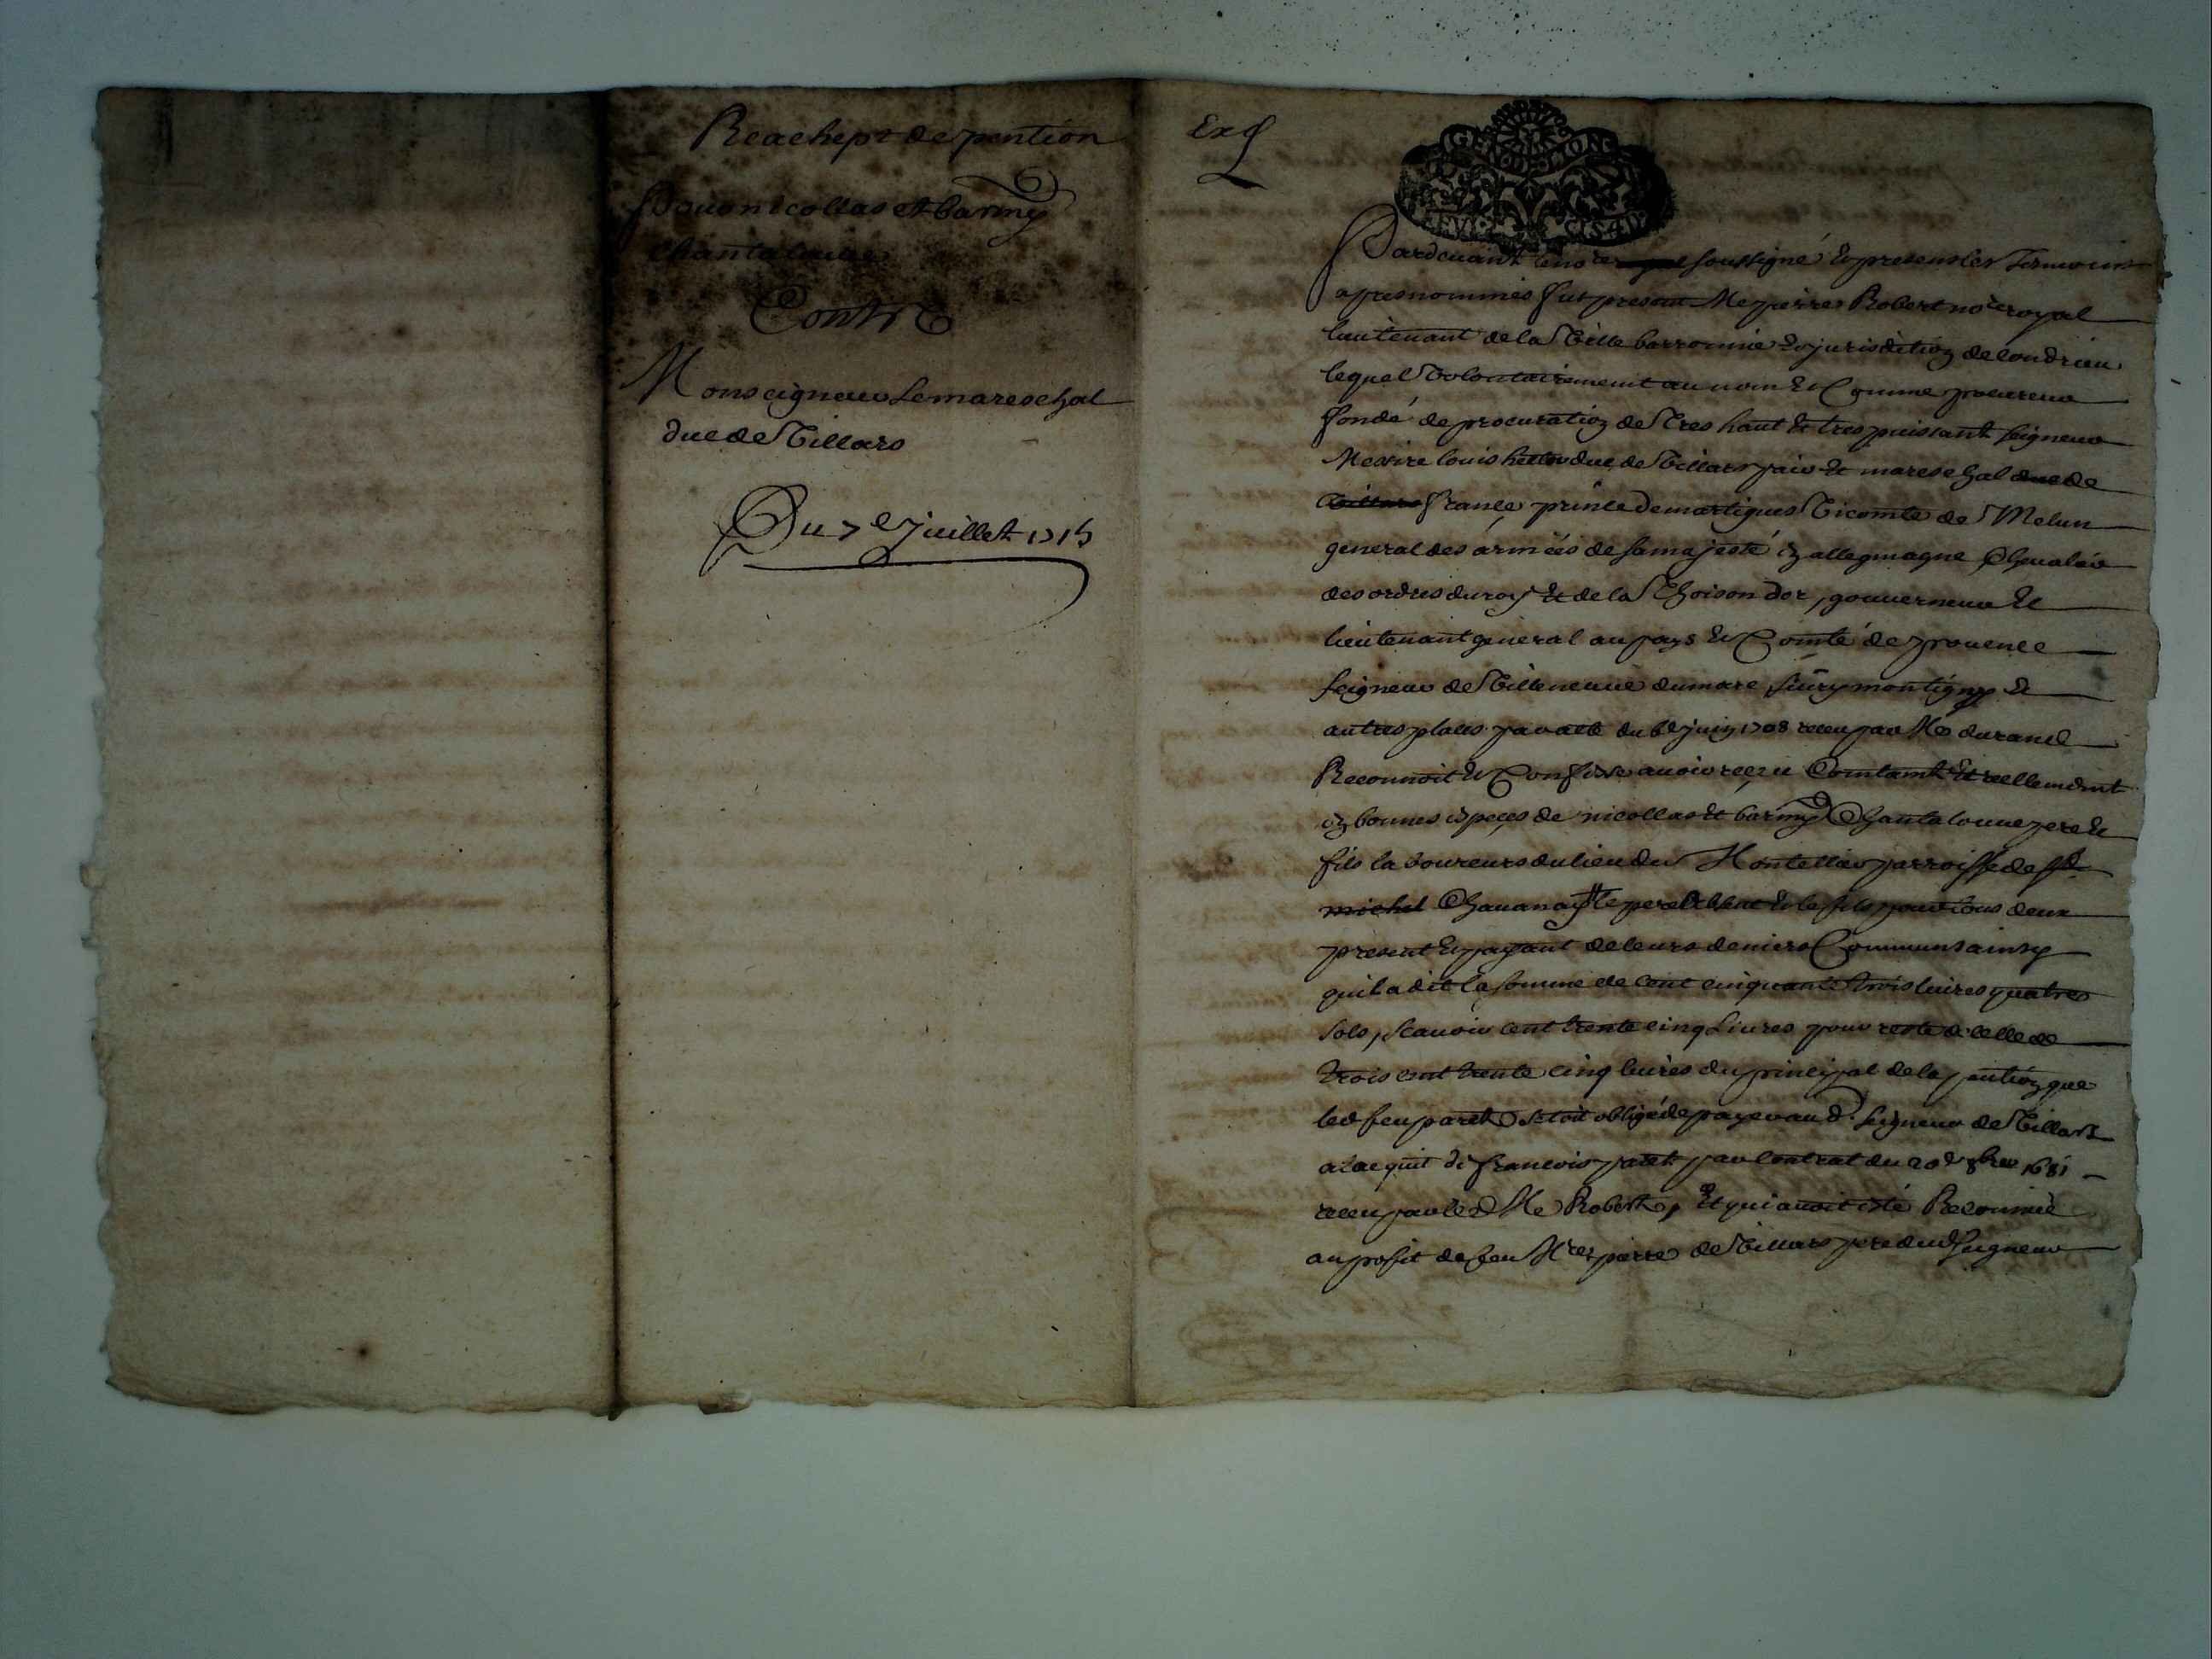 Reachept de pention
Pour nicollas et barmy
Chantalouue
Contre
Monseigneur Le mareschal
duc de Villars
Du 7e Juillet 1715
Ex
GEN DE LYON
Pardeuant le nore soussigné & presens les temoins
apres nommés fut present Me pierre Robert nore royal
lieutenant de la Ville barronnie & jurisdition de Condrieu
lequel Volontairement au nom & Comme procureur
fondé de procuration de Tres haut & tres puissant seigneur
Messire louis hector duc de Villars pair & mareschal de
france prince de martigues Vicomte de Melun
general des armées de sa majesté en allegmagne Cheualier
des ordres du roy & de la Thoison dor, gouuerneur &
lieutenant general au pays & Comté de prouence
seigneur de Villeneuue dumare montigny &
autres places par acte du 6e juin 1708 receu par Me durand
Reconnoit & Confesse auoir reçeu Comtamt & reellemdent
en bonnes espeçes de nicollas & barmy Chantalouue pere &
fils laboureurs du lieu du Montellier parroisse de St
michel Chauanay le pere absent & le fils pour tous deux
present & payant de leurs deniers Communs ainsy
quil a dit la somme de cent cinquante trois liures quatres
sols, scauoir cent trente cinq Liures pour reste de celle de
trois cent trente cinq liures du principal de la pention que
led feu paret setoit obligé de payer aud. seigneur de Villars
alacquit de francois paret par contrat du 20e 8bre 1681
receu par led Me Robert, et qui auoit esté Reconnüe
au profit de feu Mre pierre de Villars pere dud seigneur